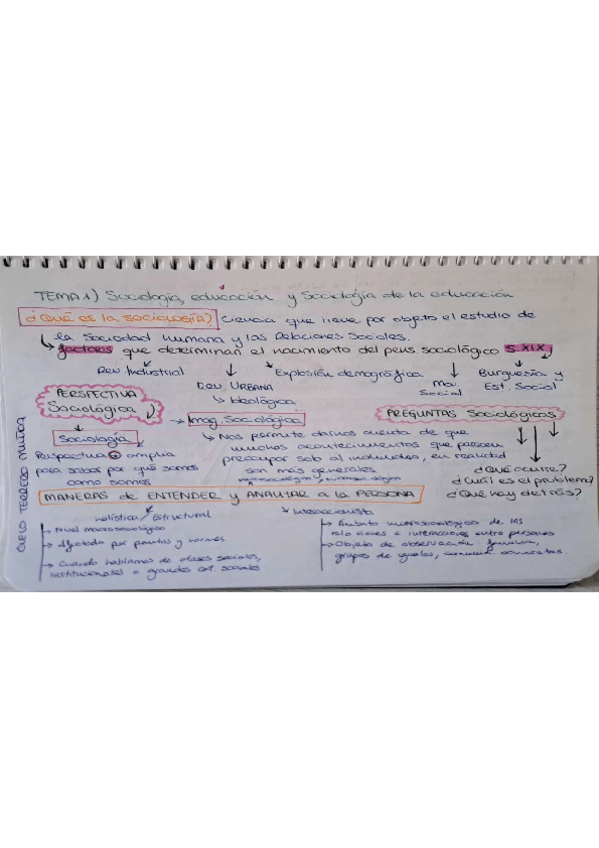 TEMA 1) Sociología, educación y Sociología de la educación
¿Qué es la sociología? Ciencia que tiene por objeto el estudio de
la Sociedad humana y las Relaciones Sociales.
↳ factores que determinan el nacimiento del pens sociológico S.XIX
Rev. Industrial
Rev. URBANA
Ideológica
Explosión demográfica
Mov. Social
Burguesía y
Est. Social
PERSPECTIVA
Sociológica
Sociología
Perspectiva + amplia
para saber por qué somos
como somos
→ Imag. Sociológica
↳ Nos permite darnos cuenta de que
muchos acontecimientos que parecen
preocupar solo al individuo, en realidad
son más generales
PREGUNTAS Sociológicas
¿Qué ocurre?
¿Cuál es el problema?
¿Qué hay detrás?
MANERAS de ENTENDER y ANALIZAR a la PERSONA
holística/Estructural
→ Nivel macrosociológico
→ Afectada por pautas y normas
→ Cuando hablamos de clases sociales,
institucionales o grandes est. sociales
Interaccionista
→ Ámbito microsociológico de las
relaciones e interacciones entre personas
→ Objeto de observación familia,
grupos de iguales, comuni. concretas.
CIELO TERRERO MUÑOZ